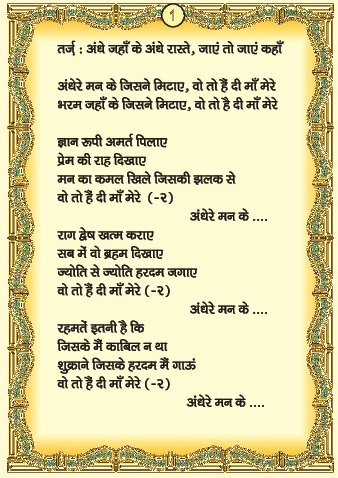 1
तर्ज़ : अंधे जहाँ के अंधे रास्ते, जाएं तो जाएं कहाँ
अंधेरे मन के जिसने मिटाए, वो तो हैं दी माँ मेरे
भरम जहाँ के जिसने मिटाए, वो तो है दी माँ मेरे
ज्ञान रूपी अमर्त पिलाए
प्रेम की राह दिखाए
मन का कमल खिले जिसकी झलक से
वो तो हैं दी माँ मेरे (-२)
अंधेरे मन के ....
राग द्वेष खत्म कराए
सब में वो ब्रहम दिखाए
ज्योति से ज्योति हरदम जगाए
वो तो हैं दी माँ मेरे (-२)
अंधेरे मन के ....
रहमतें इतनी है कि
जिसके मैं काबिल न था
शुक्राने जिसके हरदम मैं गाऊं
वो तो हैं दी माँ मेरे (-२)
अंधेरे मन के ....